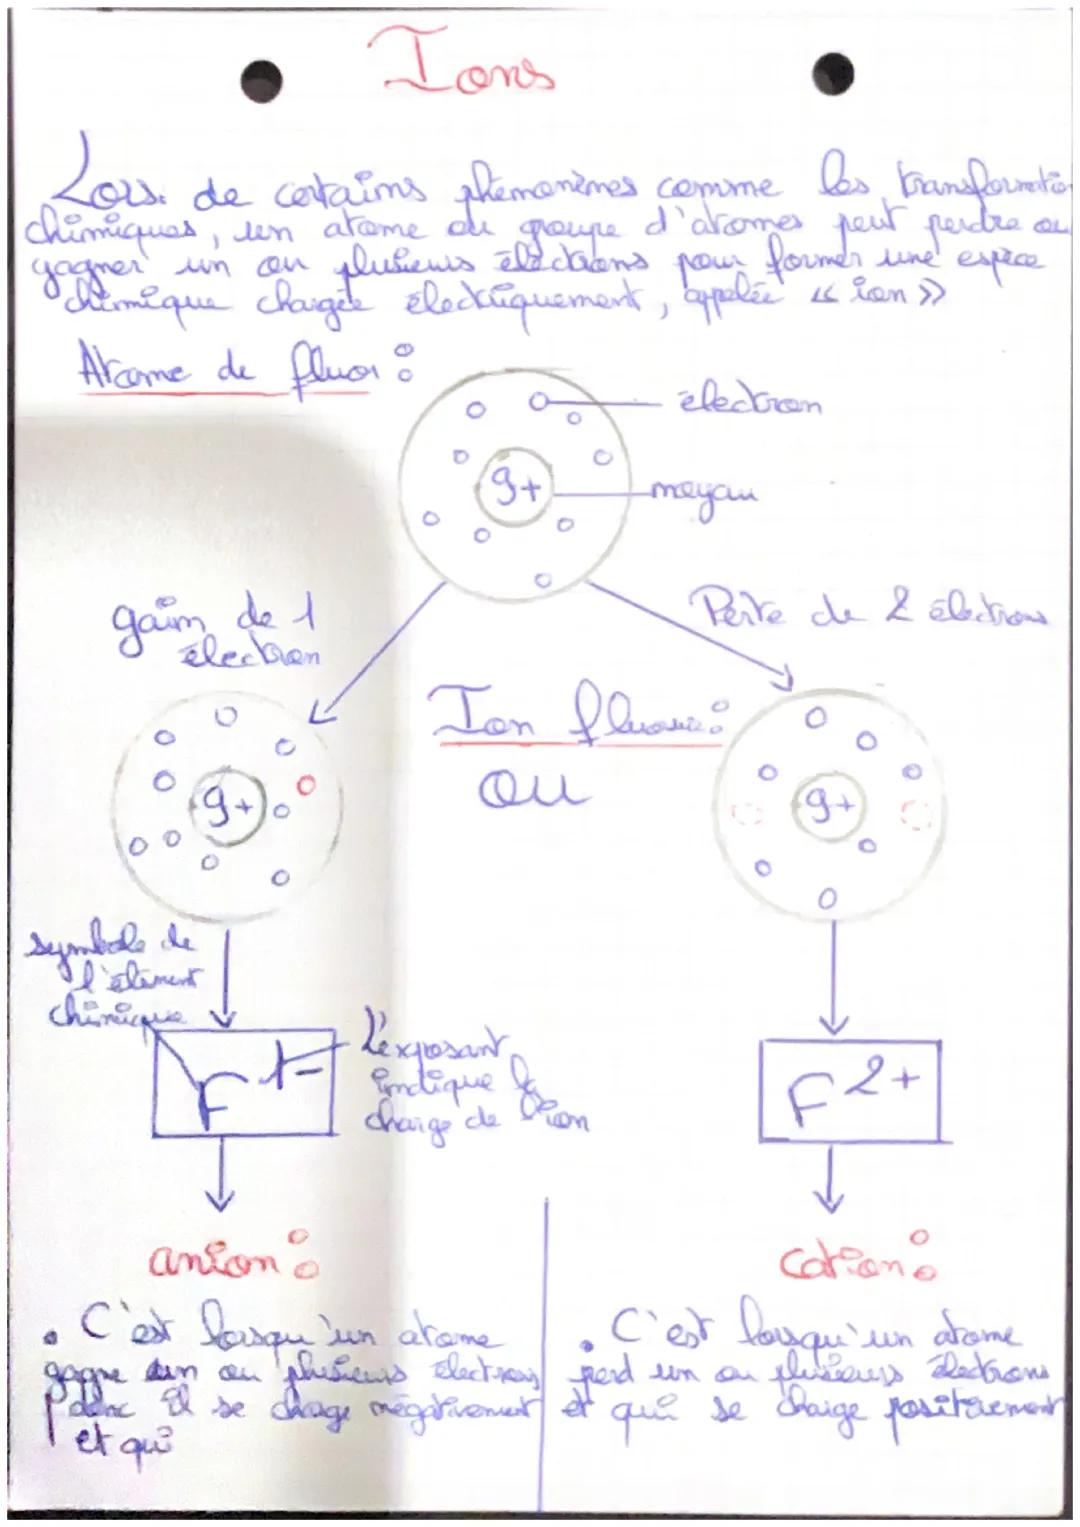 Ions
Lors de certains phénomènes comme les transformatio
chimiques, un atome ou groupe d'atomes peut perdre ou
gagner un ou plusieurs électrons pour former une espèce
chimique chargée électriquement, appelée « ion »
Atome de fluor :
électron
9+
noyau
gain de 1
électron
Perte de 2 électrons
Ion fluorure :
ou
9+
9+
symbole de
l'élément
chimique
F 1-
L'exposant
indique la
charge de l'ion
F 2+
anion :
cation :
• C'est lorsqu'un atome
gagne un ou plusieurs électrons
donc il se charge négativement
et qui
• C'est lorsqu'un atome
perd un ou plusieurs électrons
et qui se charge positivement